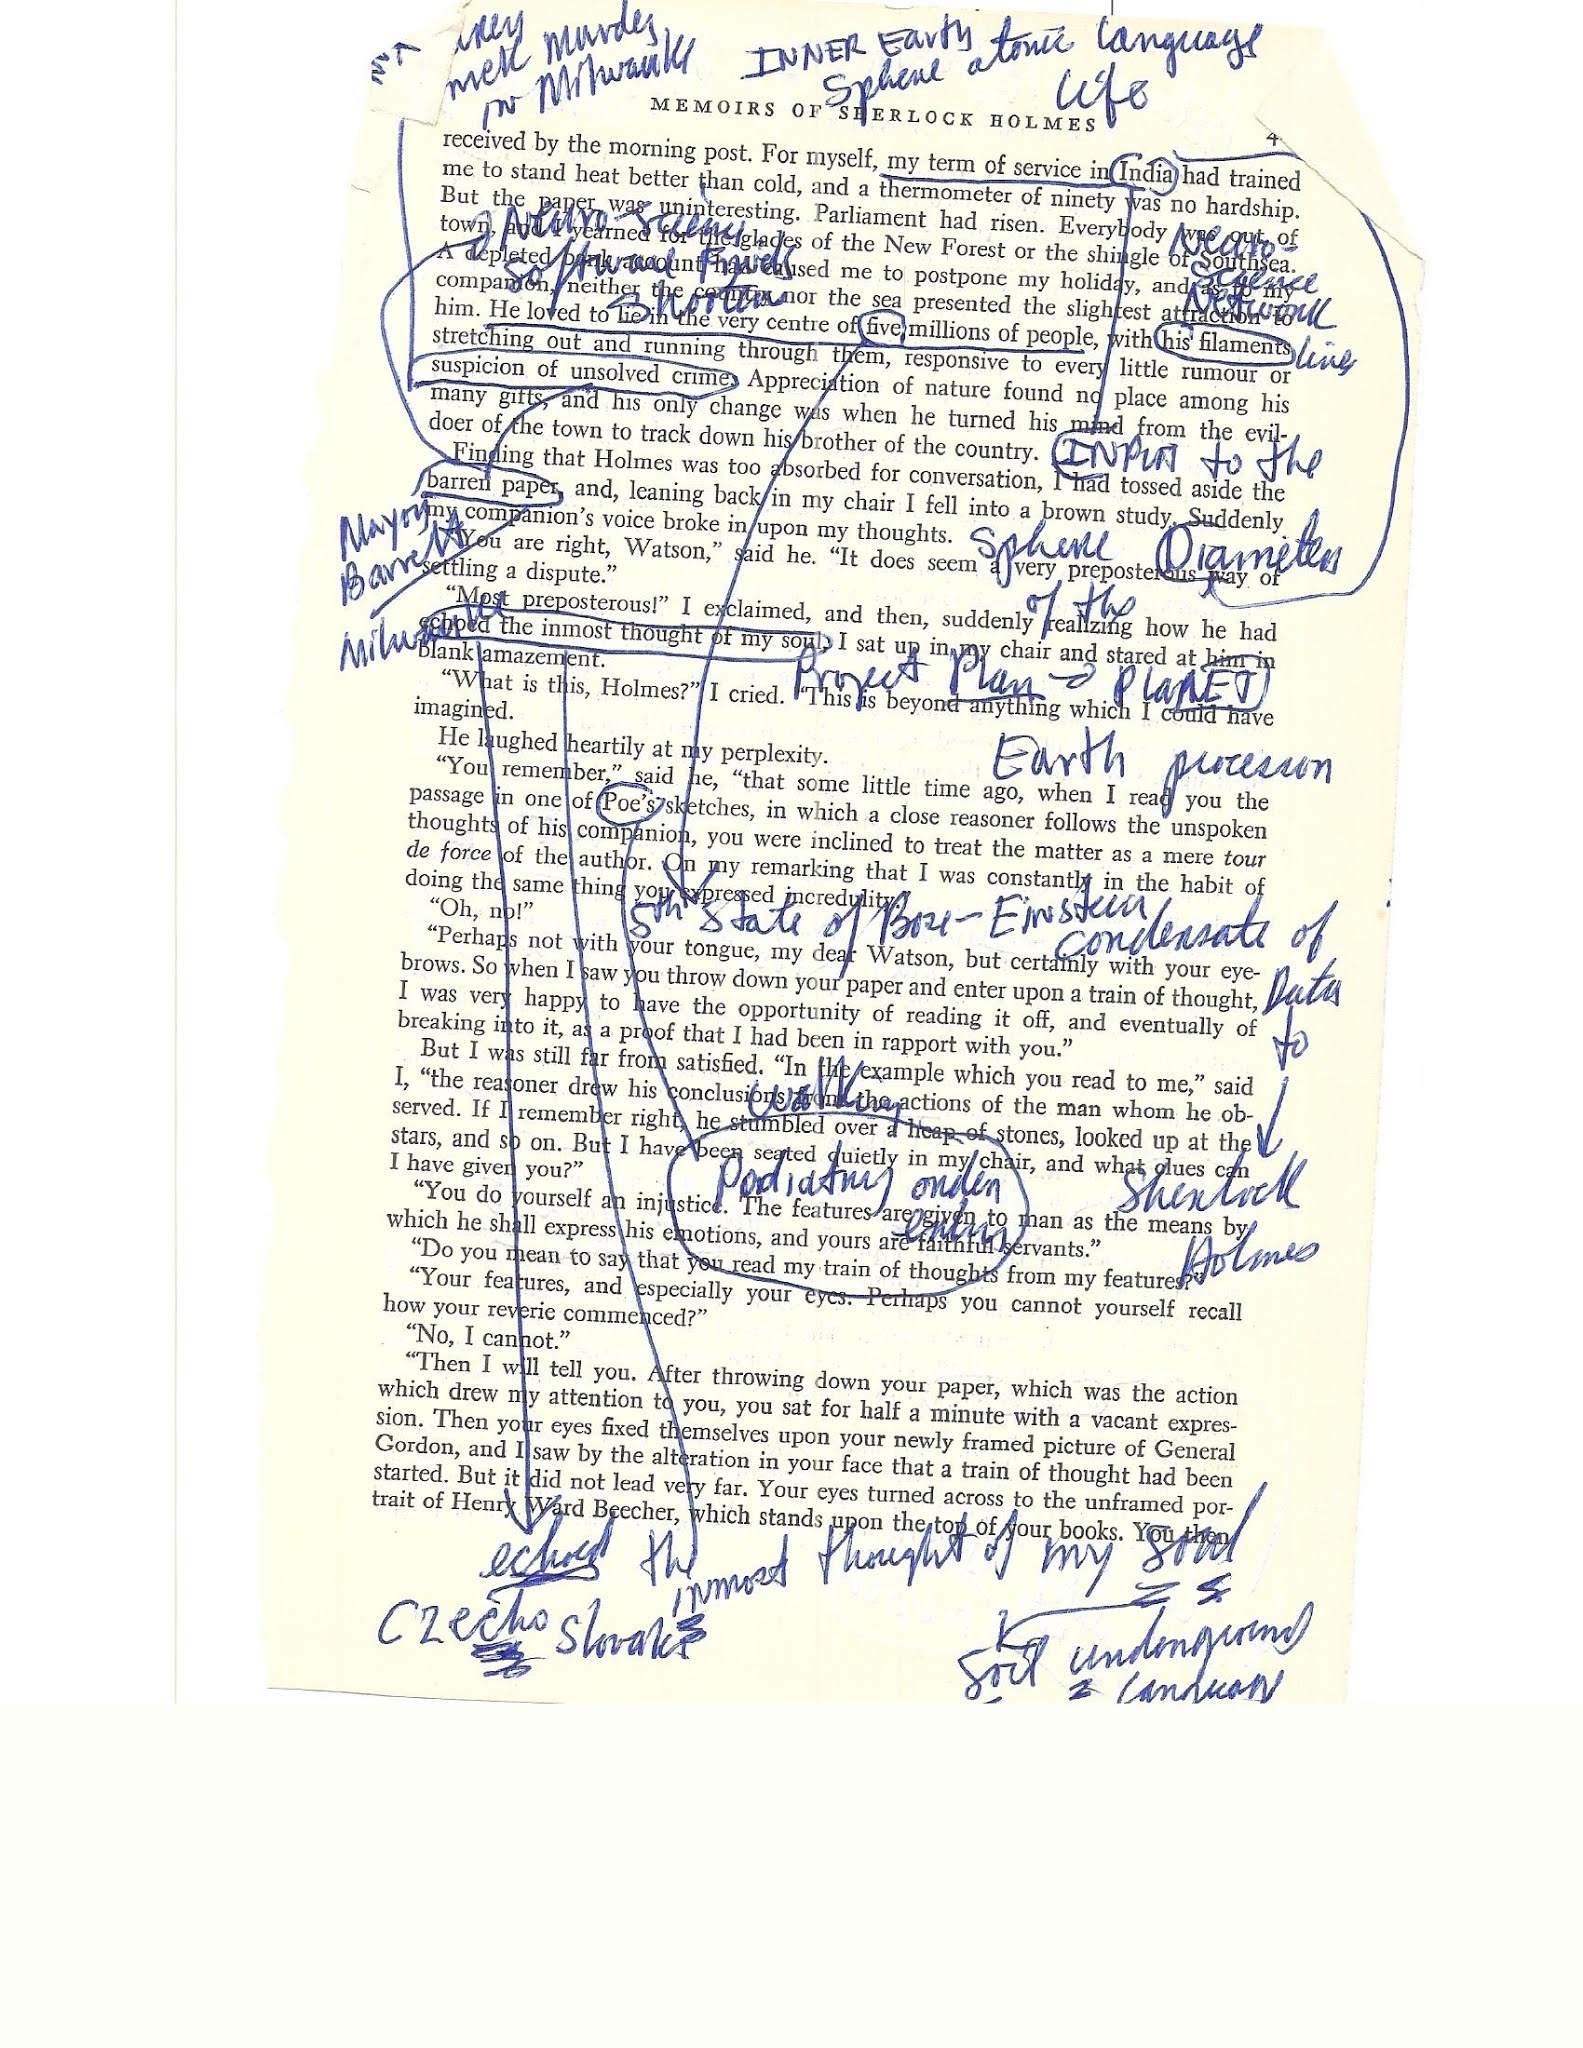 murder
in Milwaukk
INNER Earth atomic language
Sphere
life
MEMOIRS OF SHERLOCK HOLMES
4
received by the morning post. For myself, my term of service in India had trained
me to stand heat better than cold, and a thermometer of ninety was no hardship.
But the paper was uninteresting. Parliament had risen. Everybody was out of
town, and I yearned for the glades of the New Forest or the shingle of Southsea.
A depleted bank account had caused me to postpone my holiday, and as to my
companion, neither the country nor the sea presented the slightest attraction to
him. He loved to lie in the very centre of five millions of people, with his filaments
stretching out and running through them, responsive to every little rumour or
suspicion of unsolved crime. Appreciation of nature found no place among his
many gifts, and his only change was when he turned his mind from the evil-
doer of the town to track down his brother of the country.
Neuro-
Science
Network
lines
INPUT to the
Finding that Holmes was too absorbed for conversation, I had tossed aside the
barren paper, and, leaning back in my chair I fell into a brown study. Suddenly
my companion's voice broke in upon my thoughts.
Sphere Diameter
Mayor
Barrett
"You are right, Watson," said he. "It does seem a very preposterous way of
settling a dispute."
of the
"Most preposterous!" I exclaimed, and then, suddenly realizing how he had
echoed the inmost thought of my soul, I sat up in my chair and stared at him in
blank amazement.
Project Plan → PlaNET
"What is this, Holmes?" I cried. "This is beyond anything which I could have
imagined.
Earth processor
He laughed heartily at my perplexity.
"You remember," said he, "that some little time ago, when I read you the
passage in one of Poe's sketches, in which a close reasoner follows the unspoken
thoughts of his companion, you were inclined to treat the matter as a mere tour
de force of the author. On my remarking that I was constantly in the habit of
doing the same thing you expressed incredulity."
5th State of Bose-Einstein
condensate of
Data
to
Sherlock
Holmes
"Oh, no!"
"Perhaps not with your tongue, my dear Watson, but certainly with your eye-
brows. So when I saw you throw down your paper and enter upon a train of thought,
I was very happy to have the opportunity of reading it off, and eventually of
breaking into it, as a proof that I had been in rapport with you."
But I was still far from satisfied. "In the example which you read to me," said
I, "the reasoner drew his conclusions from the actions of the man whom he ob-
served. If I remember right, he stumbled over a heap of stones, looked up at the
stars, and so on. But I have been seated quietly in my chair, and what clues can
I have given you?"
walking
Podiatry
"You do yourself an injustice. The features are given to man as the means by
which he shall express his emotions, and yours are faithful servants."
"Do you mean to say that you read my train of thoughts from my features?"
"Your features, and especially your eyes. Perhaps you cannot yourself recall
how your reverie commenced?"
"No, I cannot."
"Then I will tell you. After throwing down your paper, which was the action
which drew my attention to you, you sat for half a minute with a vacant expres-
sion. Then your eyes fixed themselves upon your newly framed picture of General
Gordon, and I saw by the alteration in your face that a train of thought had been
started. But it did not lead very far. Your eyes turned across to the unframed por-
trait of Henry Ward Beecher, which stands upon the top of your books. You then
echoed the inmost thought of my soul
Czecho Slovak
soil underground